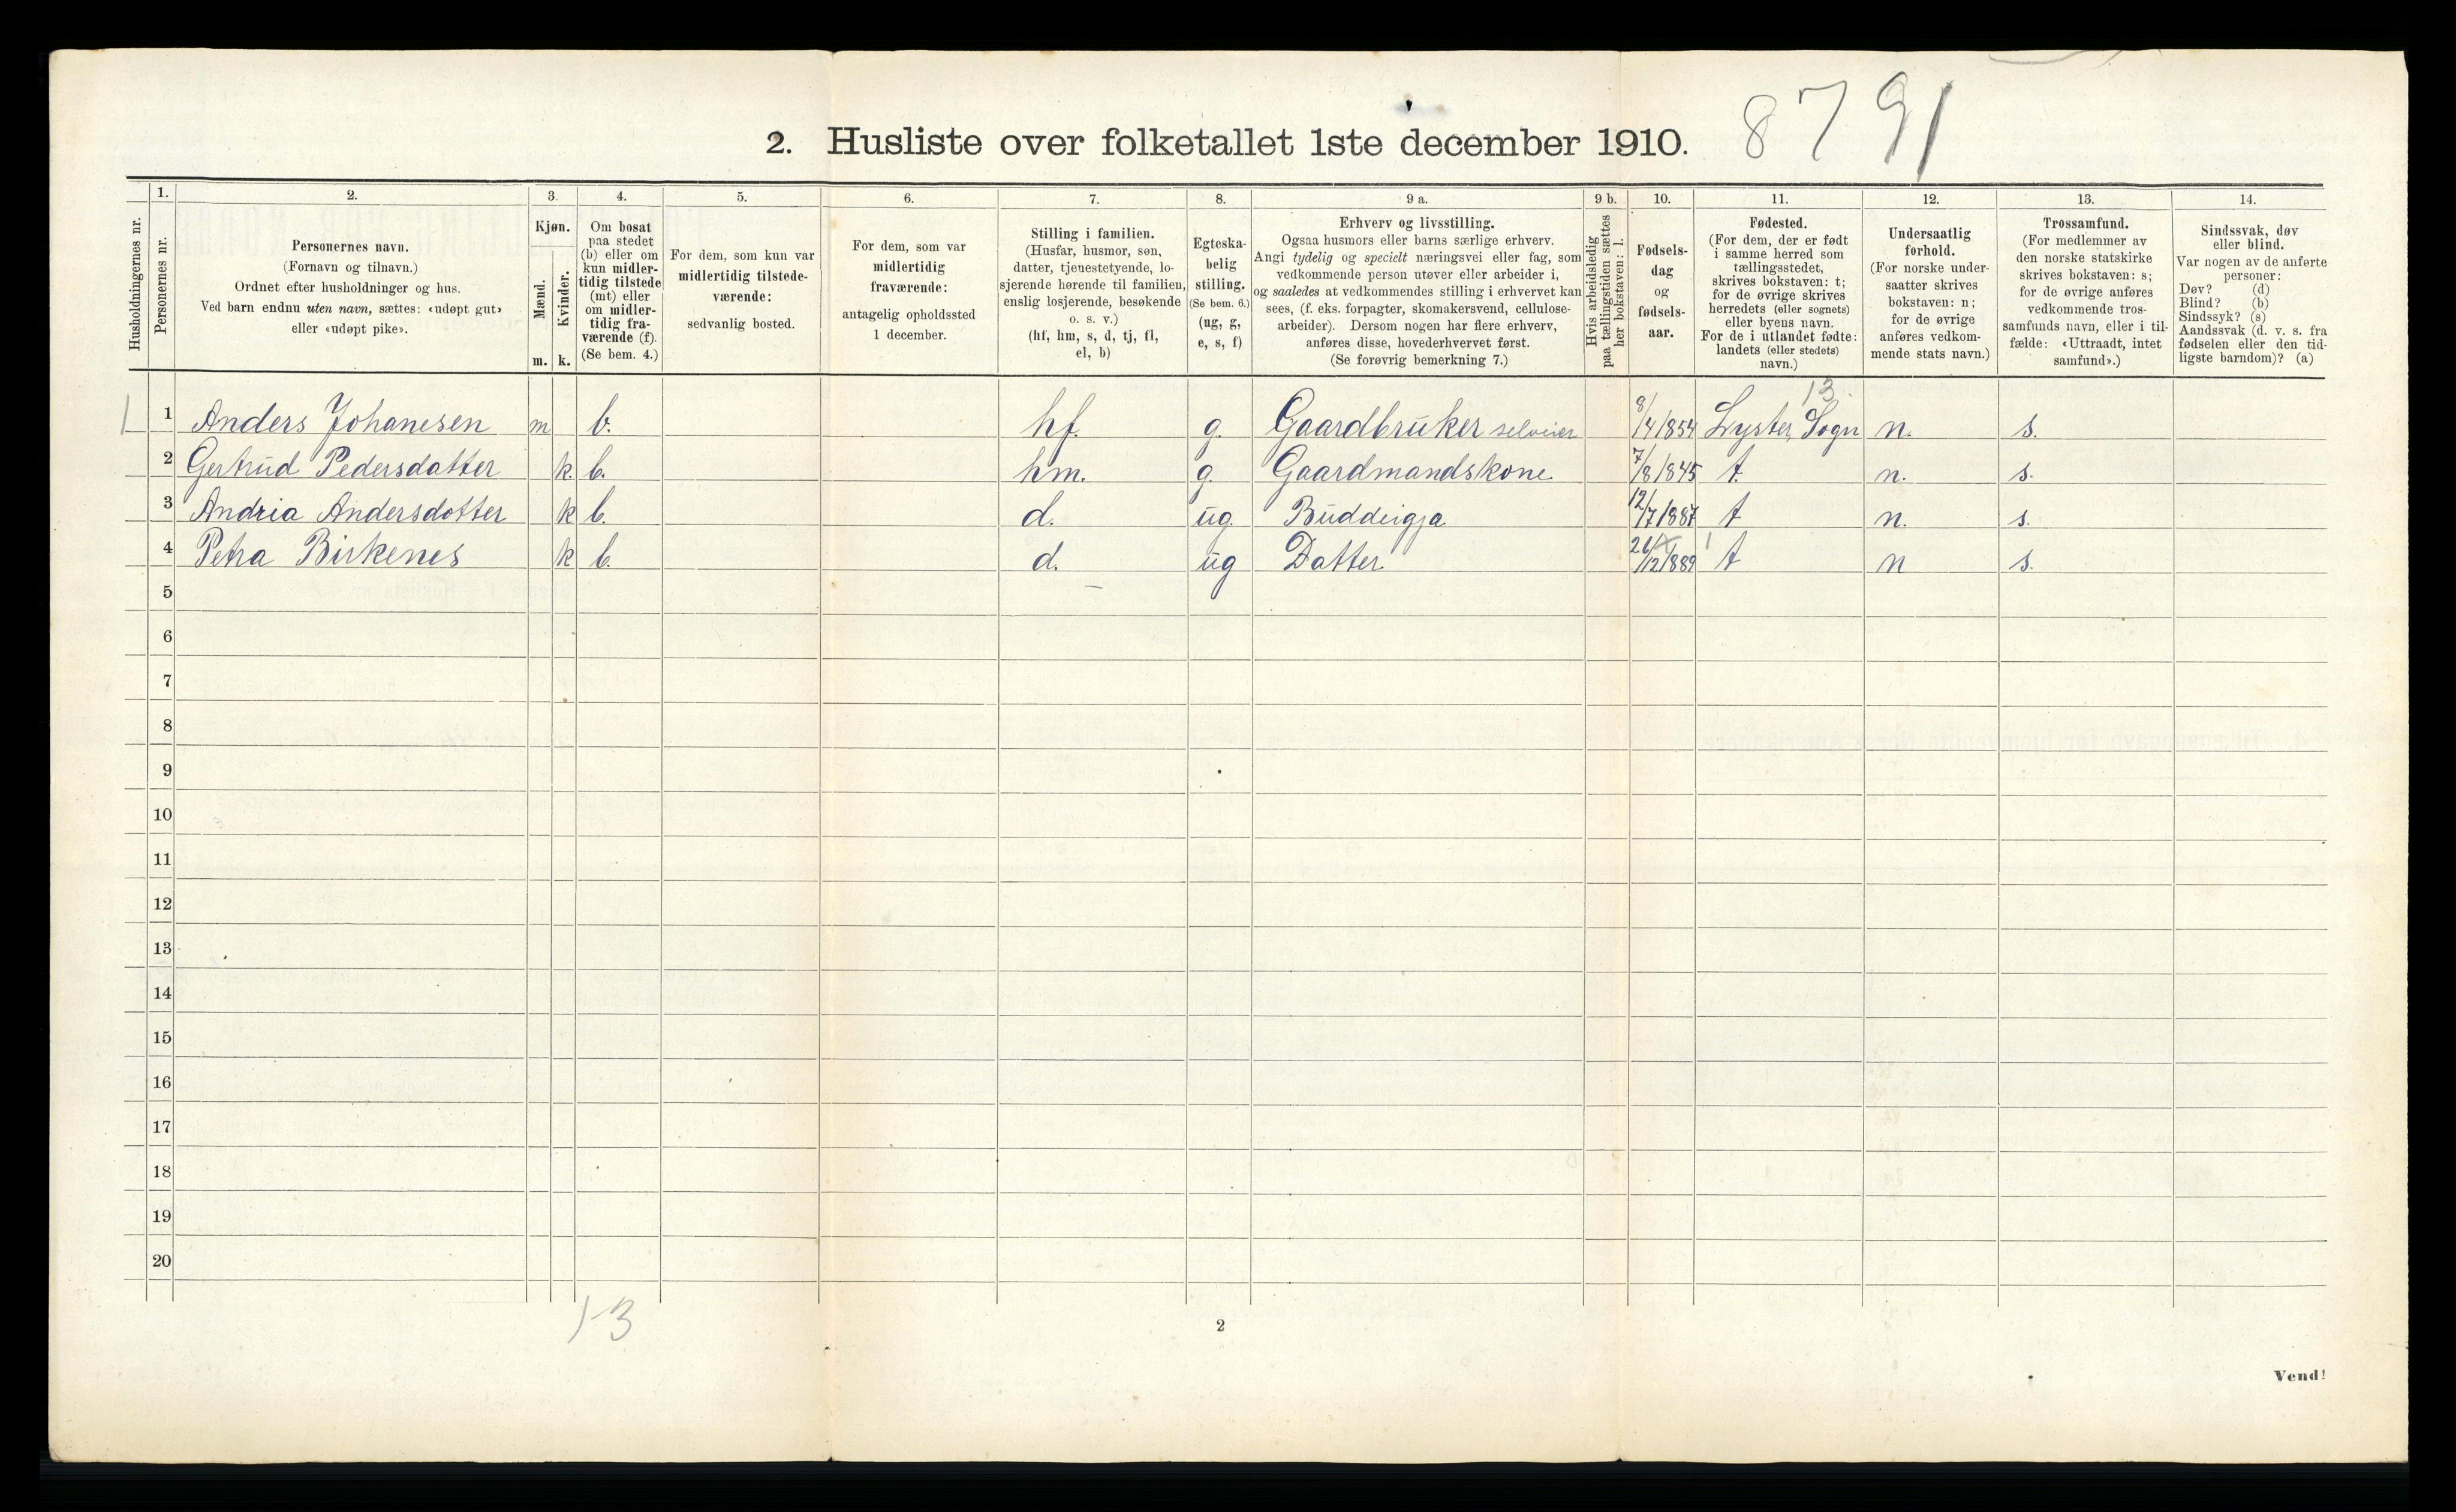 2. Husliste over folketallet 1ste december 1910. 8791
1. 2. 3. 4. 5. 6. 7. 8. 9 a. 9 b. 10. 11. 12. 13. 14.
Husholdningernes nr.
Personernes nr.
Personernes navn.
(Fornavn og tilnavn.)
Ordnet efter husholdninger og hus.
Ved barn endnu uten navn, sættes: «udøpt gut»
eller «udøpt pike».
Kjøn.
Mænd.
Kvinder.
m. k.
Om bosat
paa stedet
(b) eller om
kun midler-
tidig tilstede
(mt) eller
om midler-
tidig fra-
værende (f).
(Se bem. 4.)
For dem, som kun var
midlertidig tilstede-
værende:
sedvanlig bosted.
For dem, som var
midlertidig
fraværende:
antagelig opholdssted
1 december.
Stilling i familien.
(Husfar, husmor, søn,
datter, tjenestetyende, lo-
sjerende hørende til familien,
enslig losjerende, besøkende
o. s. v.)
(hf, hm, s, d, tj, fl,
el, b)
Egteska-
belig
stilling.
(Se bem. 6.)
(ug, g,
e, s, f)
Erhverv og livsstilling.
Ogsaa husmors eller barns særlige erhverv.
Angi tydelig og specielt næringsvei eller fag, som
vedkommende person utøver eller arbeider i,
og saaledes at vedkommendes stilling i erhvervet kan
sees, (f. eks. forpagter, skomakersvend, cellulose-
arbeider). Dersom nogen har flere erhverv,
anføres disse, hovederhvervet først.
(Se forøvrig bemerkning 7.)
Hvis arbeidsledig
paa tællingstiden sættes
her bokstaven: l.
Fødsels-
dag
og
fødsels-
aar.
Fødested.
(For dem, der er født
i samme herred som
tællingsstedet,
skrives bokstaven: t;
for de øvrige skrives
herredets (eller sognets)
eller byens navn.
For de i utlandet fødte:
landets (eller stedets)
navn.)
Undersaatlig
forhold.
(For norske under-
saatter skrives
bokstaven: n;
for de øvrige
anføres vedkom-
mende stats navn.)
Trossamfund.
(For medlemmer av
den norske statskirke
skrives bokstaven: s;
for de øvrige anføres
vedkommende tros-
samfunds navn, eller i til-
fælde: «Uttraadt, intet
samfund».)
Sindssvak, døv
eller blind.
Var nogen av de anførte
personer:
Døv? (d)
Blind? (b)
Sindssyk? (s)
Aandssvak (d. v. s. fra
fødselen eller den tid-
ligste barndom)? (a)
13.
1 1 Anders Johanesen m b. hf. g. Gaardbruker selveier 8/4 1854 Lyster, Sogn n. s.
2 Gertrud Pedersdatter k. b. hm. g. Gaardmandskone 7/8 1845 t. n. s.
3 Andria Andersdotter k b. d. ug. Buddeigja 12/7 1887 t n. s.
4 Petra Birkenes k b. d. ug Datter 26/12 1889 t n s.
5
6
7
8
9
10
11
12
13
14
15
16
17
18
19
20
1-3
2
Vend!